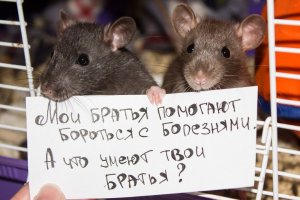 Мои братья помогают
бороться с болезнями.
А что умеют твои
братья?